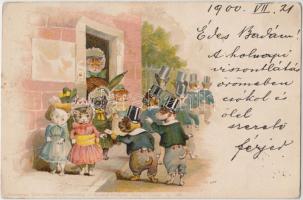 1900. VII. 21
Édes Badám!
A holnapi
viszontlátás
örömében
csókol és
ölel
szerető
férjed